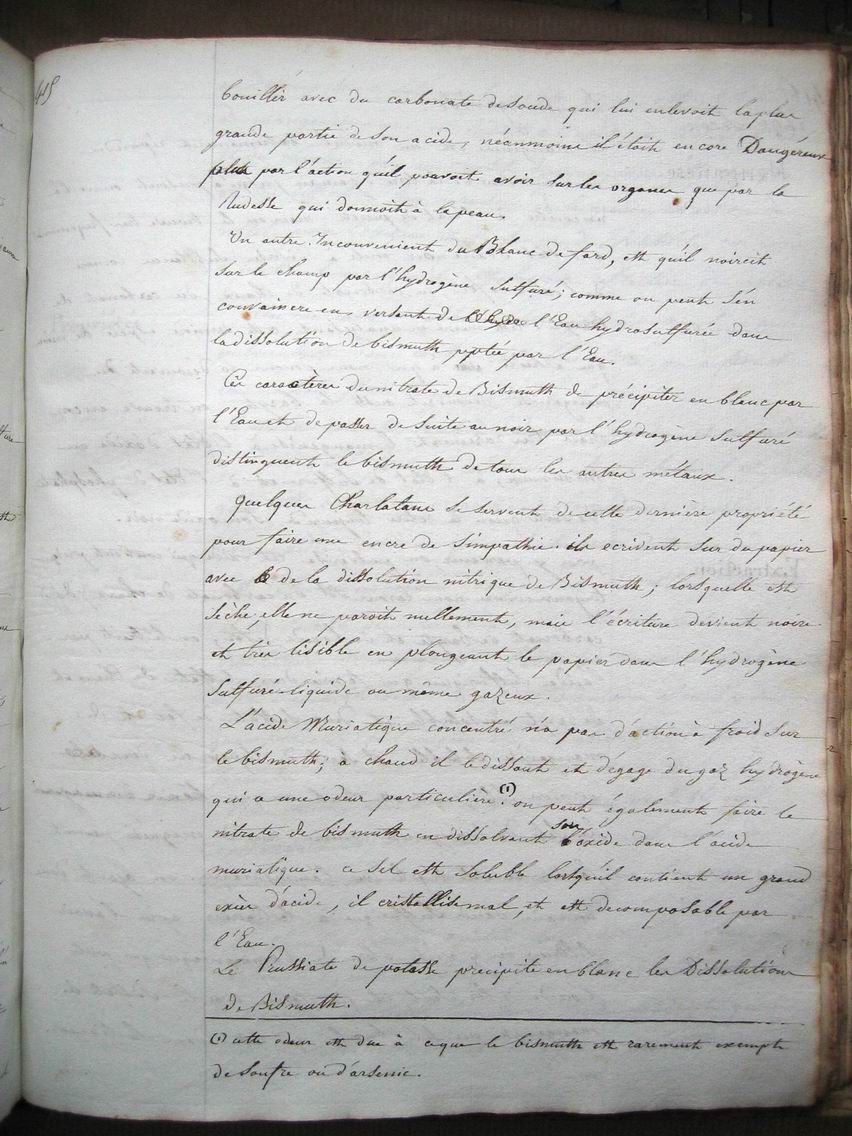 415
bouillir avec du carbonate de soude qui lui enlevoit la plus
grande partie de son acide, néanmoins il étoit encore Dangéreux
plus par l'action qu'il pouvoit avoir sur les organes que par la
Rudesse qui donnoit à la peau.
Un autre Inconvenient du Blanc de fard, est qu'il noircit
sur le champ par l'hydrogène Sulfuré; comme on peut s'en
convaincre en versant de l'Eau hydrosulfurée dans
la dissolution de bismuth pptée par l'Eau.
Ces caractères du nitrate de Bismuth de précipiter en blanc par
l'Eau et de passer de suite au noir par l'hydrogène Sulfuré
distinguent le bismuth de tous les autres métaux.
Quelques Charlatans se servent de cette dernière propriété
pour faire une encre de Simpathie. ils ecrivent sur du papier
avec de la dissolution nitrique de Bismuth; lorsquelle est
sèche, elle ne paroit nullement, mais l'écriture devient noire
et très lisible en plongeant le papier dans l'hydrogène
Sulfuré liquide ou même gazeux.
L'acide Muriatique concentré n'a pas d'action à froid sur
le bismuth; à chaud il le dissout et dégage du gaz hydrogène
qui a une odeur particulière. (1) on peut également faire le
nitrate de bismuth en dissolvant son oxide dans l'acide
muriatique. ce sel est soluble lorsqu'il contient un grand
excès d'acide, il cristallise mal, et est decomposable par
l'Eau.
Le Prussiate de potasse précipite en blanc les Dissolutions
de Bismuth.
(1) cette odeur est due à ce que le bismuth est rarement exempt
de soufre ou d'arsenic.